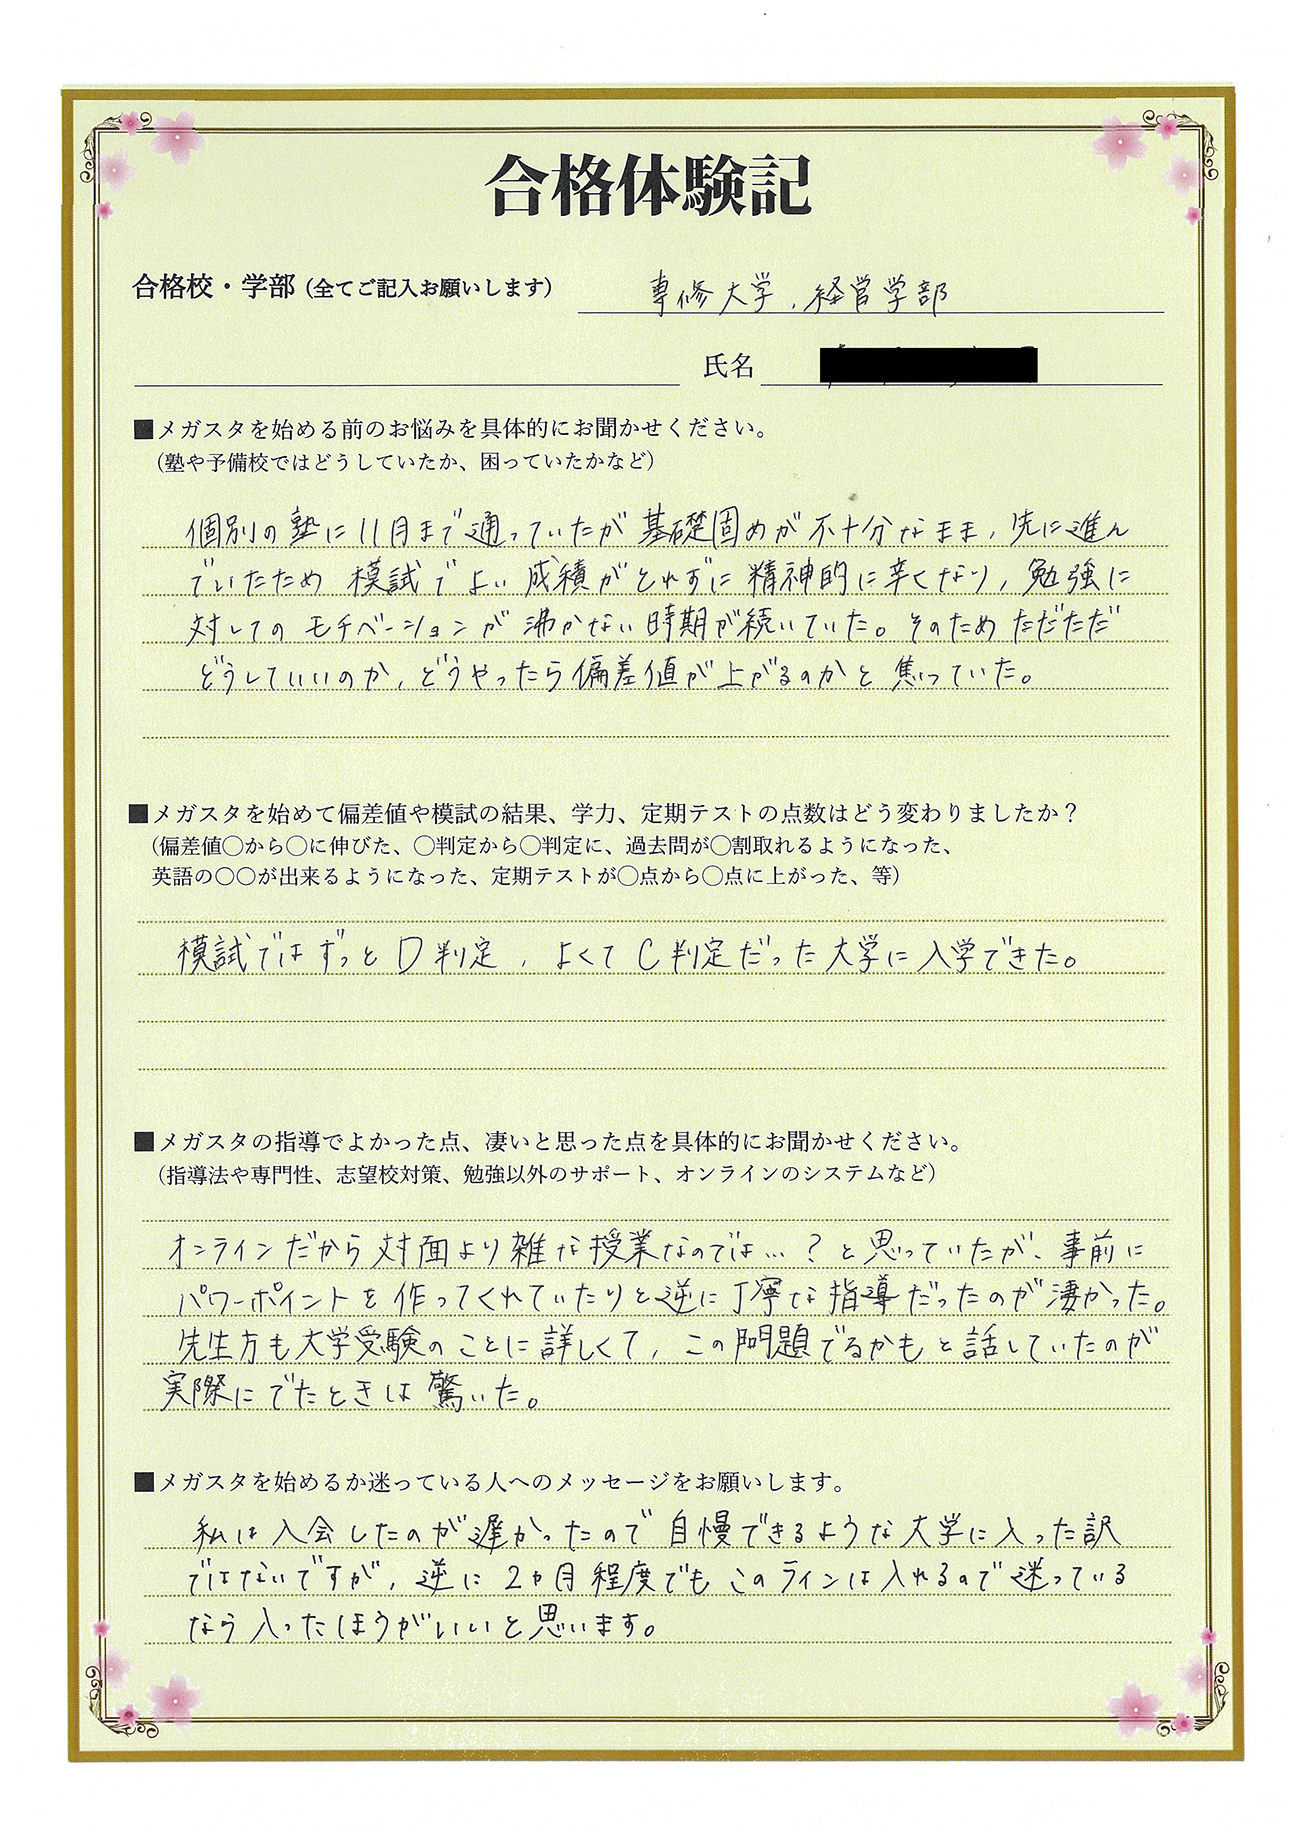 合格体験記
合格校・学部（全てご記入お願いします） 専修大学、経営学部
氏名
■メガスタを始める前のお悩みを具体的にお聞かせください。
（塾や予備校ではどうしていたか、困っていたかなど）
個別の塾に11月まで通っていたが基礎固めが不十分なまま、先に進ん
でいたため模試でよい成績がとれずに精神的に辛くなり、勉強に
対してのモチベーションが沸かない時期が続いていた。そのためただただ
どうしていいのか、どうやったら偏差値が上がるのかと焦っていた。
■メガスタを始めて偏差値や模試の結果、学力、定期テストの点数はどう変わりましたか？
（偏差値〇から〇に伸びた、〇判定から〇判定に、過去問が〇割取れるようになった、
英語の〇〇が出来るようになった、定期テストが〇点から〇点に上がった、等）
模試ではずっとD判定、よくてC判定だった大学に入学できた。
■メガスタの指導でよかった点、凄いと思った点を具体的にお聞かせください。
（指導法や専門性、志望校対策、勉強以外のサポート、オンラインのシステムなど）
オンラインだから対面より雑な授業なのでは…？と思っていたが、事前に
パワーポイントを作ってくれていたりと逆に丁寧な指導だったのが凄かった。
先生方も大学受験のことに詳しくて、この問題でるかもと話していたのが
実際にでたときは驚いた。
■メガスタを始めるか迷っている人へのメッセージをお願いします。
私は入会したのが遅かったので自慢できるような大学に入った訳
ではないですが、逆に2ヶ月程度でもこのラインは入れるので迷っている
なら入ったほうがいいと思います。